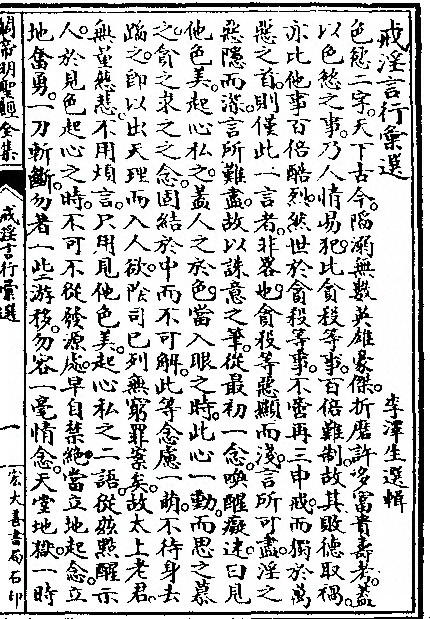 戒淫言行彙選
李澤生選輯
色慾二字。天下古今。陷溺無數英雄豪傑。折磨許多富貴壽考。蓋
以色慾之事。乃人情易犯。比貪殺等事。百倍難制。故其敗德取禍。
亦比他事百倍酷烈。然世於貪殺等事。不啻再三申戒。而獨於萬
惡之首。則僅此一言者。非畧也。貪殺等惡顯而淺。言所可盡。淫之
惡隱而深。言所難盡。故以誅意之筆。從最初一念。喚醒癡迷。曰見
他色美。起心私之。蓋人之於色。當入眼之時。此心一動。而思之慕
之。貪之求之之念。固結於中而不可解。此等念慮一萌。不待身去
蹈之。卽以出天理而入人欲。陰司已列無窮罪案矣。故太上老君。
無量慈悲。不用煩言。只用見他色美。起心私之二語。從緊點醒。示
人於見色起心之時。不可不從發源處。早自禁絕。當立地起念。立
地奮勇。一刀斬斷。勿者一些游移。勿容一毫情念。天堂地獄。一時
關帝明聖經全集
戒淫言行彙選
一
宏大善書局石印